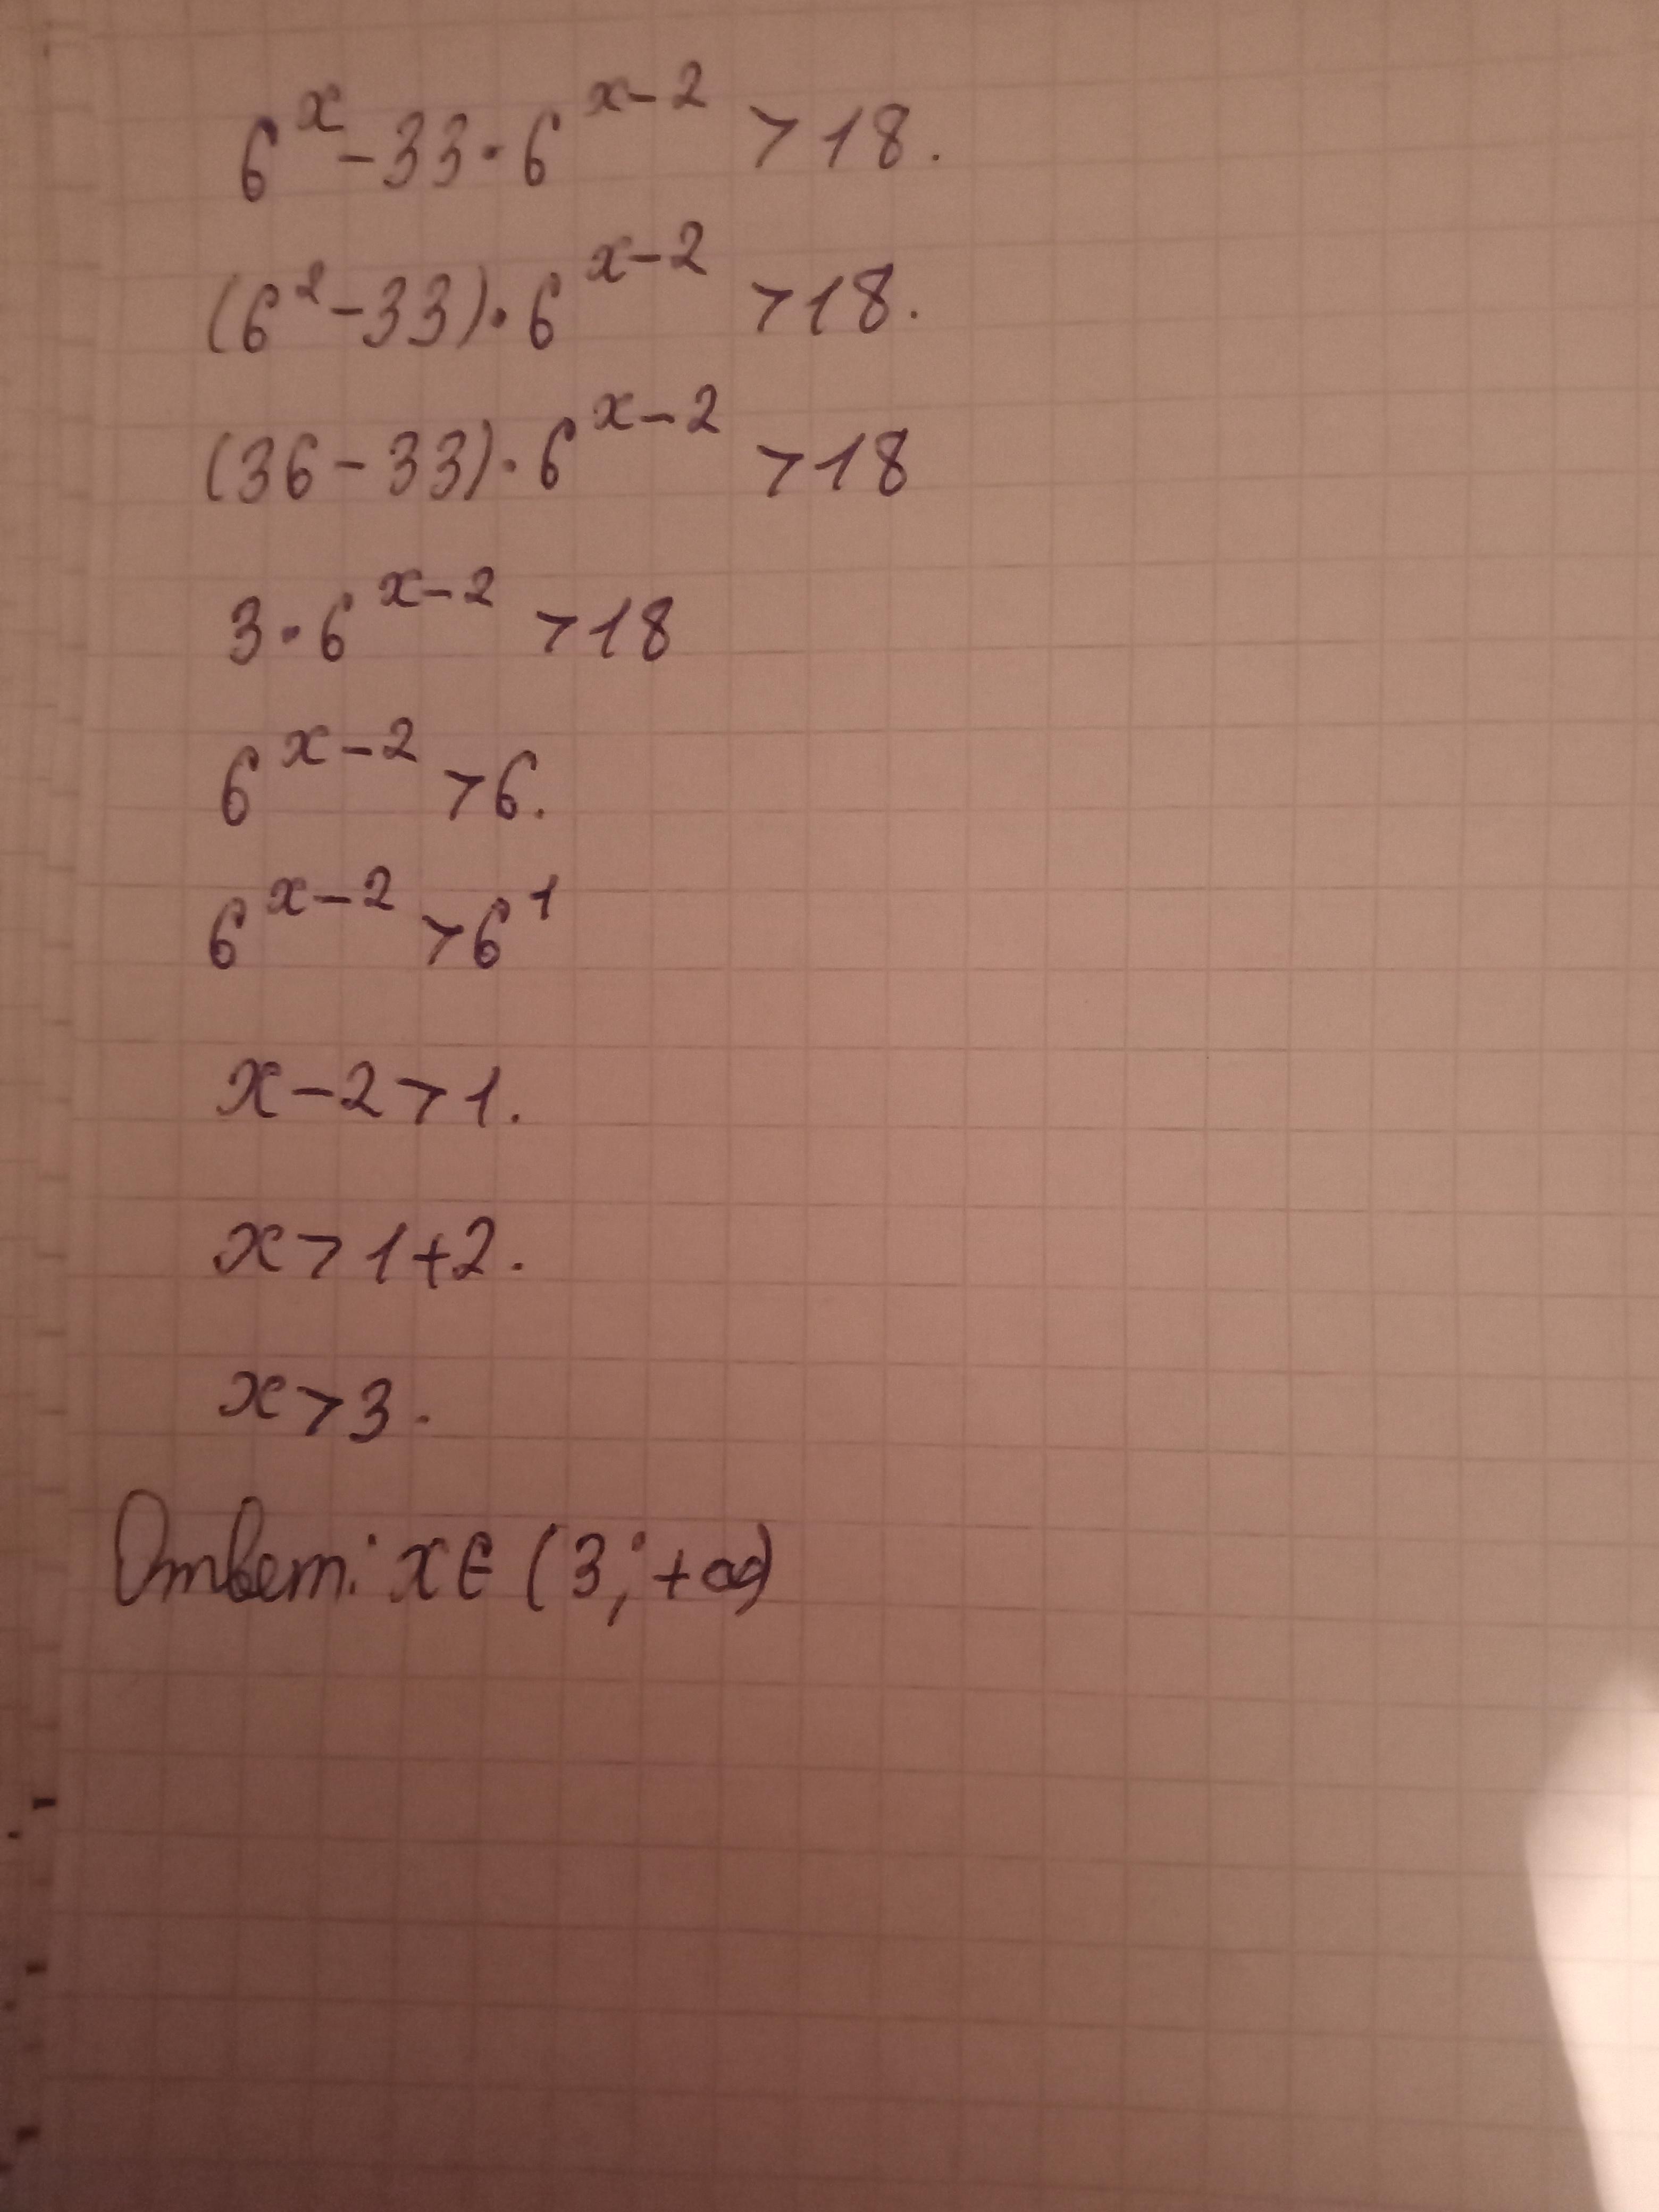 6^x - 33 · 6^{x-2} > 18.
(6^2 - 33) · 6^{x-2} > 18.
(36 - 33) · 6^{x-2} > 18
3 · 6^{x-2} > 18
6^{x-2} > 6.
6^{x-2} > 6^1
x - 2 > 1.
x > 1 + 2.
x > 3.
Ответ: x ∈ (3; +∞)